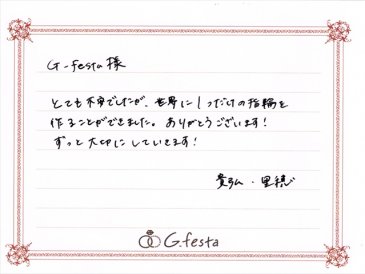 G.festa様
とても不安でしたが、世界に1つだけの指輪を
作ることができました。ありがとうございます!
ずっと大切にしていきます!
貴弘・里穂
G.festa